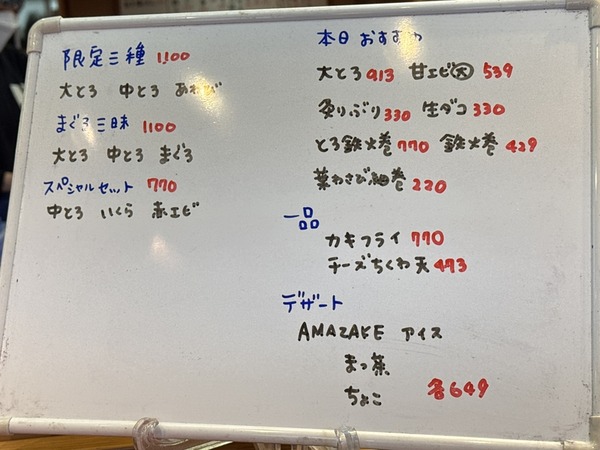 限定三種 1100
大とろ 中とろ あわび
まぐろ三昧 1100
大とろ 中とろ まぐろ
スペシャルセット 770
中とろ いくら 赤エビ
本日 おすすめ
大とろ 913 甘エビ大 539
炙りぶり 330 生ダコ 330
とろ鉄火巻 770 鉄火巻 429
葉わさび細巻 220
一品
カキフライ 770
チーズちくわ天 473
デザート
AMAZAKE アイス
まっ茶
ちょこ 各649